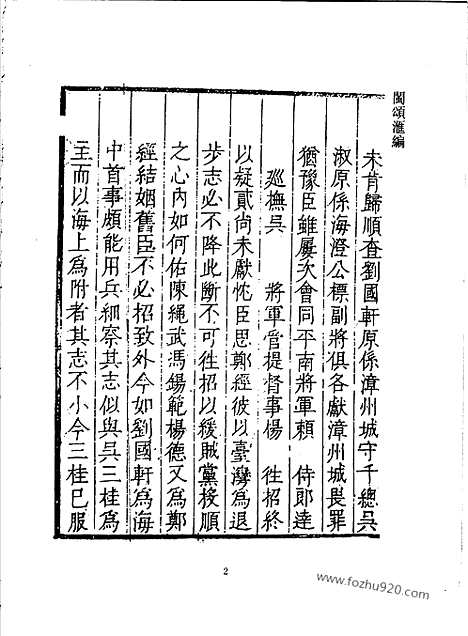 閩頌滙編
未肯歸順查劉國軒原係漳州城守千總吳
淑原係海澄公標副將俱各獻漳州城畏罪
猶豫臣雖屢次會同平南將軍賴 侍郎達
廵撫吳 將軍管提督事楊 徃招終
以疑貳尚未獻忱臣思鄭經彼以臺灣爲退
步志必不降此斷不可徃招以緩賊黨投順
之心内如何佑陳繩武馮錫範楊德又爲鄭
經結姻舊臣不必招致外今如劉國軒爲海
中首事頗能用兵細察其志似與吳三桂爲
主而以海上爲附者其志不小今三桂已服
2
www.fozhu920.com